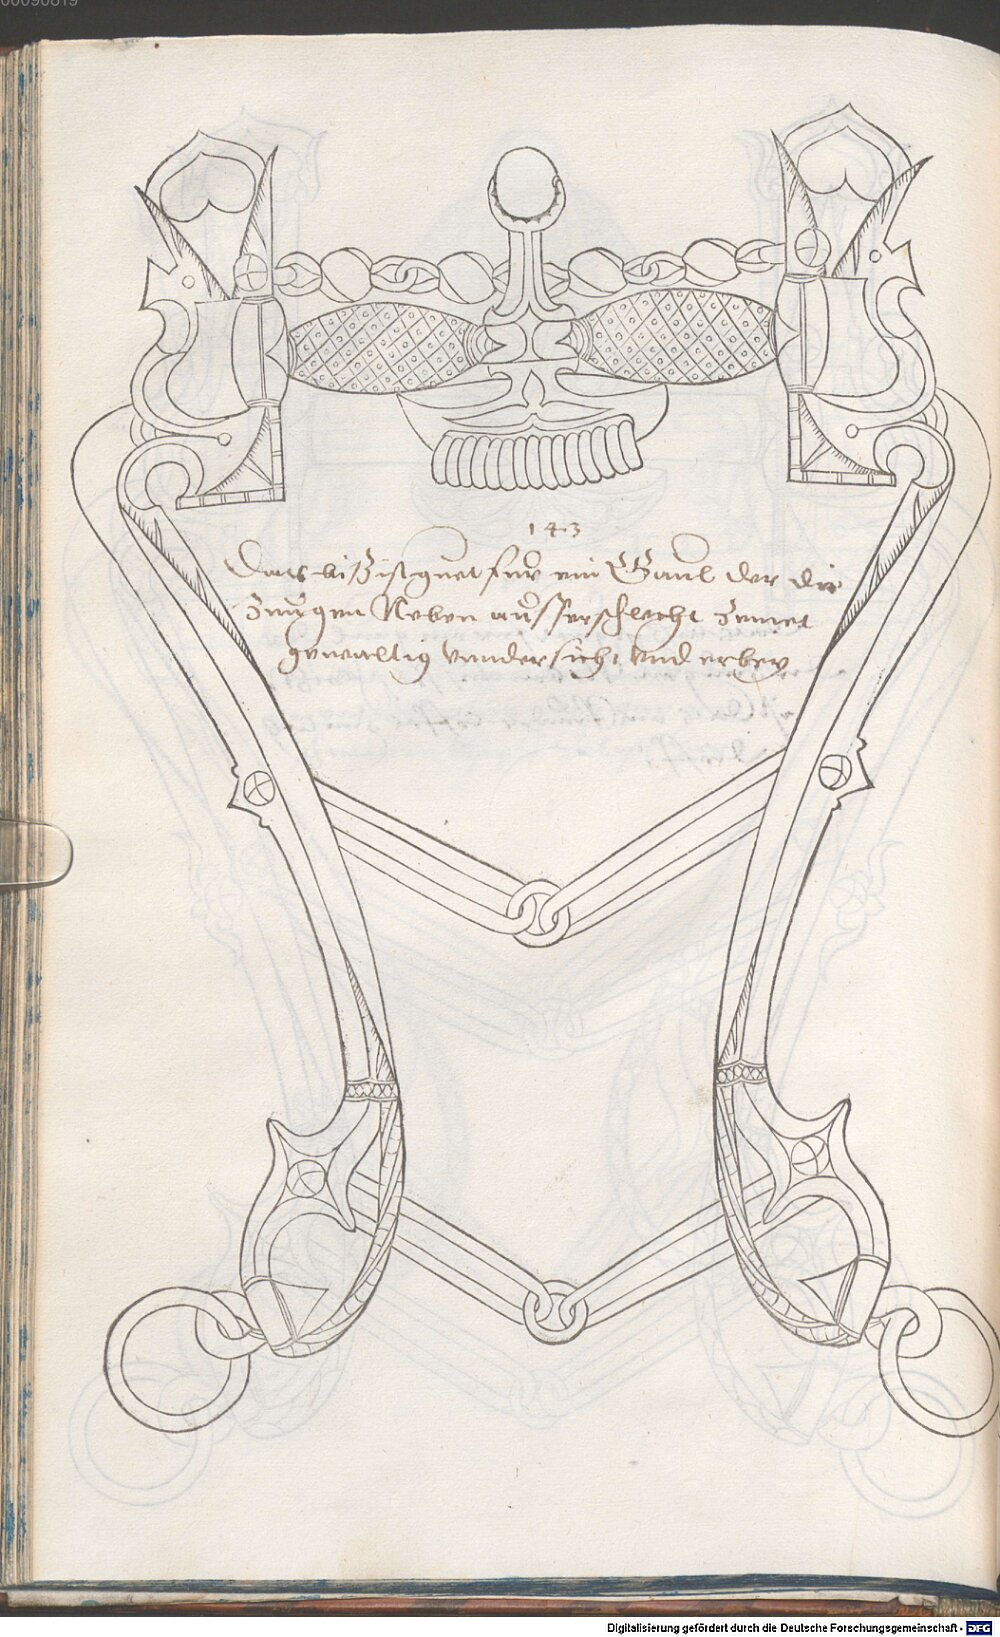 00090819
143
Das bis ist guet fur ein Gaul der die
Zungen Neben aus herschlecht Zemet
gewaltig vundersich vnd erbey
Digitalisierung gefördert durch die Deutsche Forschungsgemeinschaft - DFG